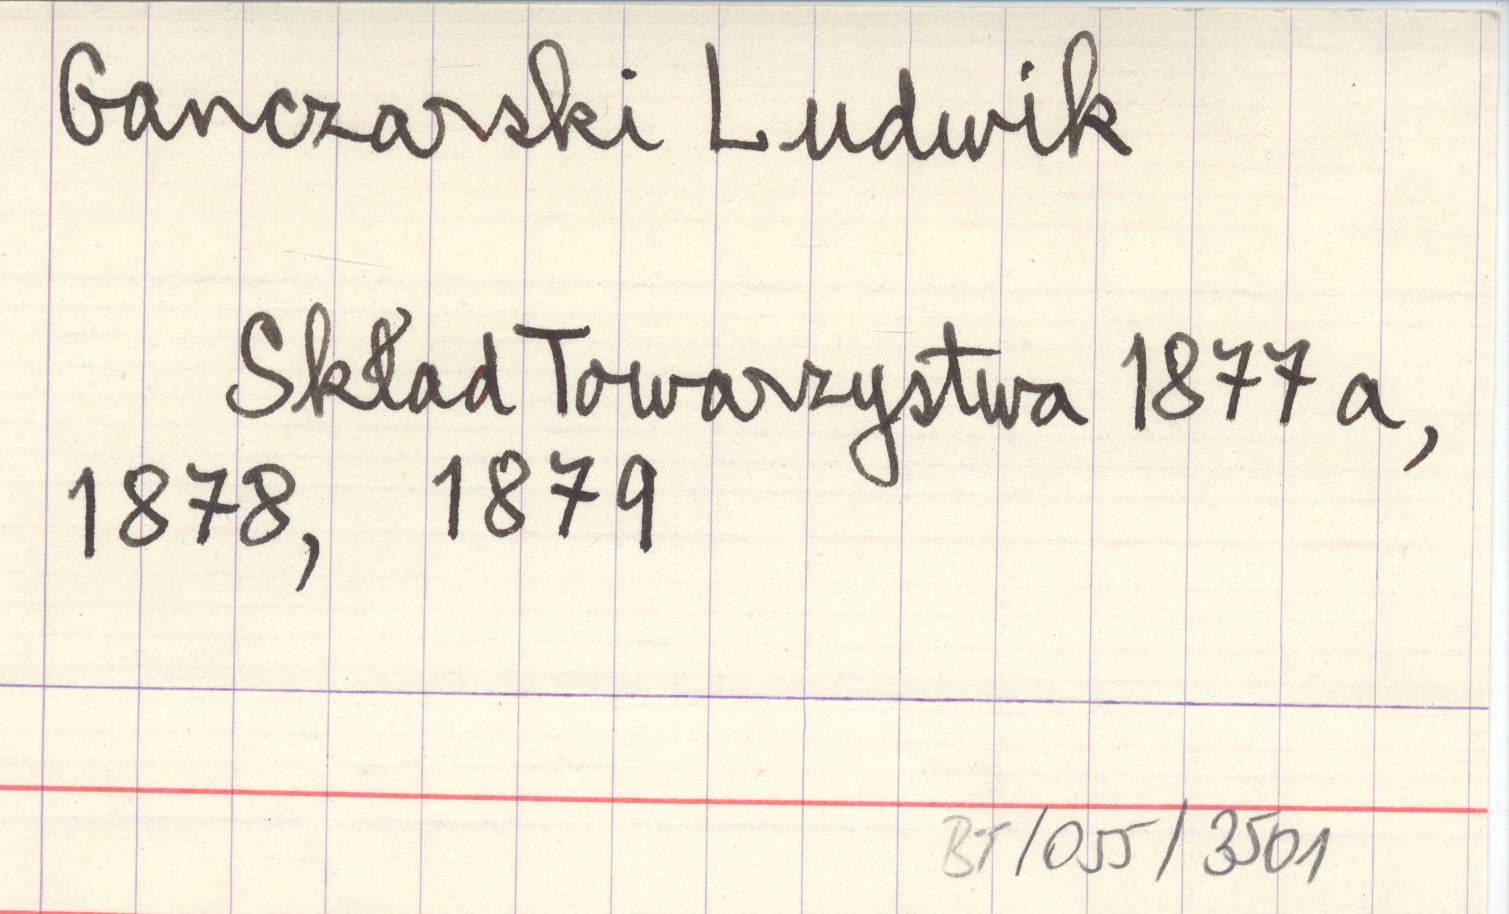 Ganczarski Ludwik
Skład Towarzystwa 1877 a,
1878, 1879
BT/055/3501